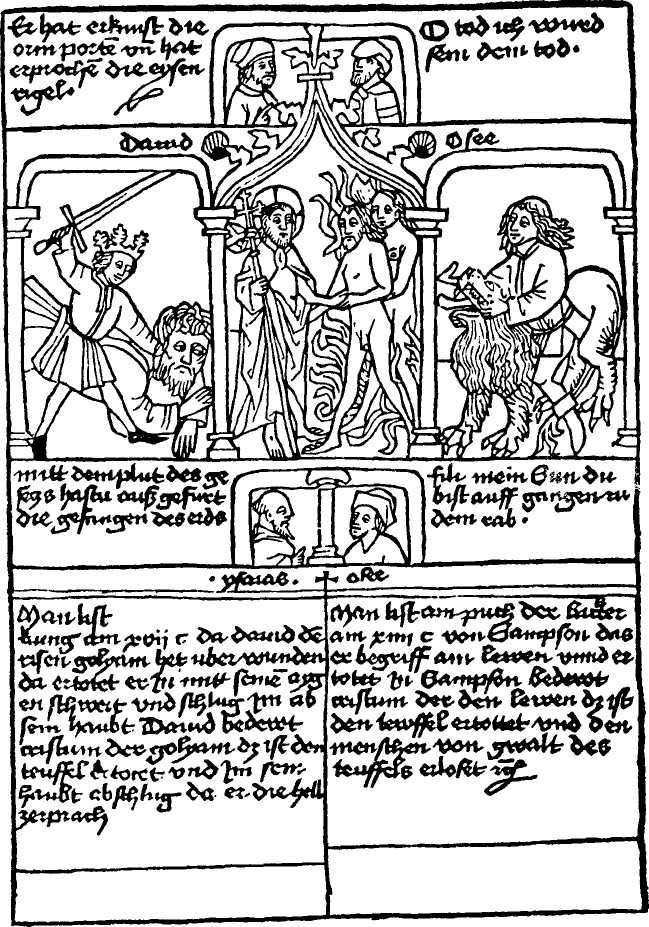 Er hat erknist die
orin porte vn hat
erproche die eysen
rigel.
O tod ich wurd
sein dein tod.
Dauid
Osee
mitt dem plut des ge
seczs hastu auß gefurt
die gefangen des eids
fili mein Sun du
bist auff gangen zu
dem rab.
ysaias.
Man list
kung am xvij c da dauid de
risen golyam het uber wunden
da ertotet er In mitt seine ayg
en schwert vnd schlug Im ab
sein haubt Dauid bedewt
cristum der golyam dz ist den
teuffel ertotet vnd Im sein
haubt abschlug da er die hell
zerprach
Man list am puch der Richter
am xiiii c von Sampson das
er begriff ain lewen vnnd er
totet in Sampson bedewt
cristum der den lewen dz ist
den tewffel ertottet vnd den
menschen von gwalt des
teuffels erlost